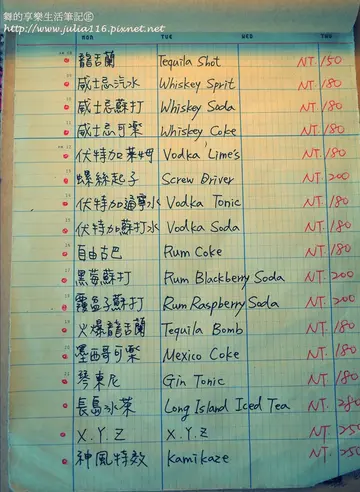 舞的享樂生活筆記
http://www.julia116.pixnet.net
MON TUE WED THU
龍吉蘭 Tequila Shot NT.150
威士忌汽水 Whiskey Sprit NT.180
威士忌蘇打 Whiskey Soda NT.180
威士忌可樂 Whiskey Coke NT.180
伏特加萊姆 Vodka Lime's NT.180
螺絲起子 Screw Driver NT.200
伏特加通寧水 Vodka Tonic NT.180
伏特加蘇打水 Vodka Soda NT.180
自由古巴 Rum Coke NT.180
黑莓蘇打 Rum Blackberry Soda NT.200
覆盆子蘇打 Rum Raspberry Soda NT.200
火爆龍吉蘭 Tequila Bomb NT.180
墨西哥可樂 Mexico Coke NT.180
琴東尼 Gin Tonic NT.180
長島冰茶 Long Island Iced Tea NT.280
X.Y.Z X.Y.Z NT.250
神風特效 Kamikaze NT.250